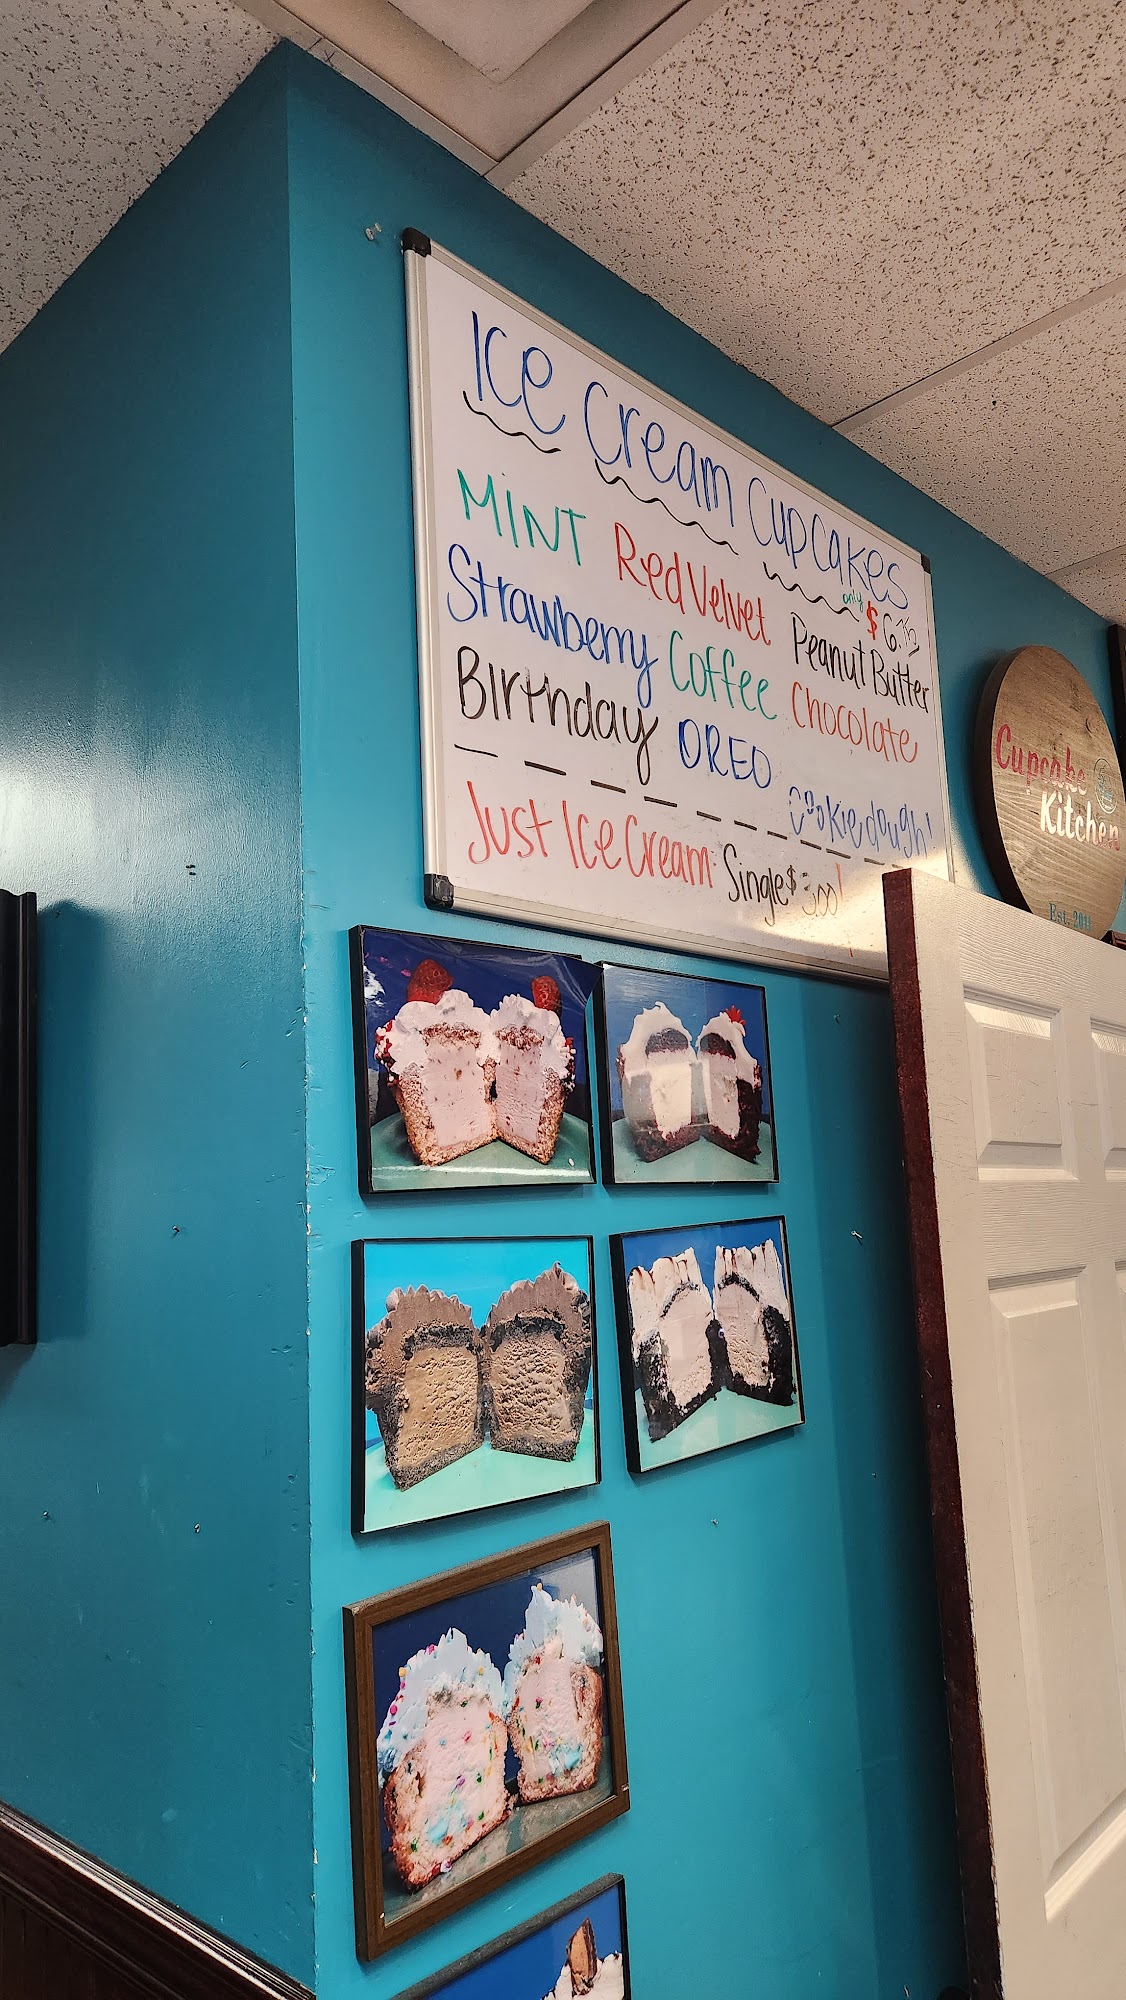 Ice Cream Cupcakes
only $ 6.75
MINT Red Velvet Peanut Butter
Strawberry Coffee Chocolate
Birthday OREO Cookie dough!
Just Ice Cream Single $ 3.00!
Cupcake
Kitchen
Est. 2011